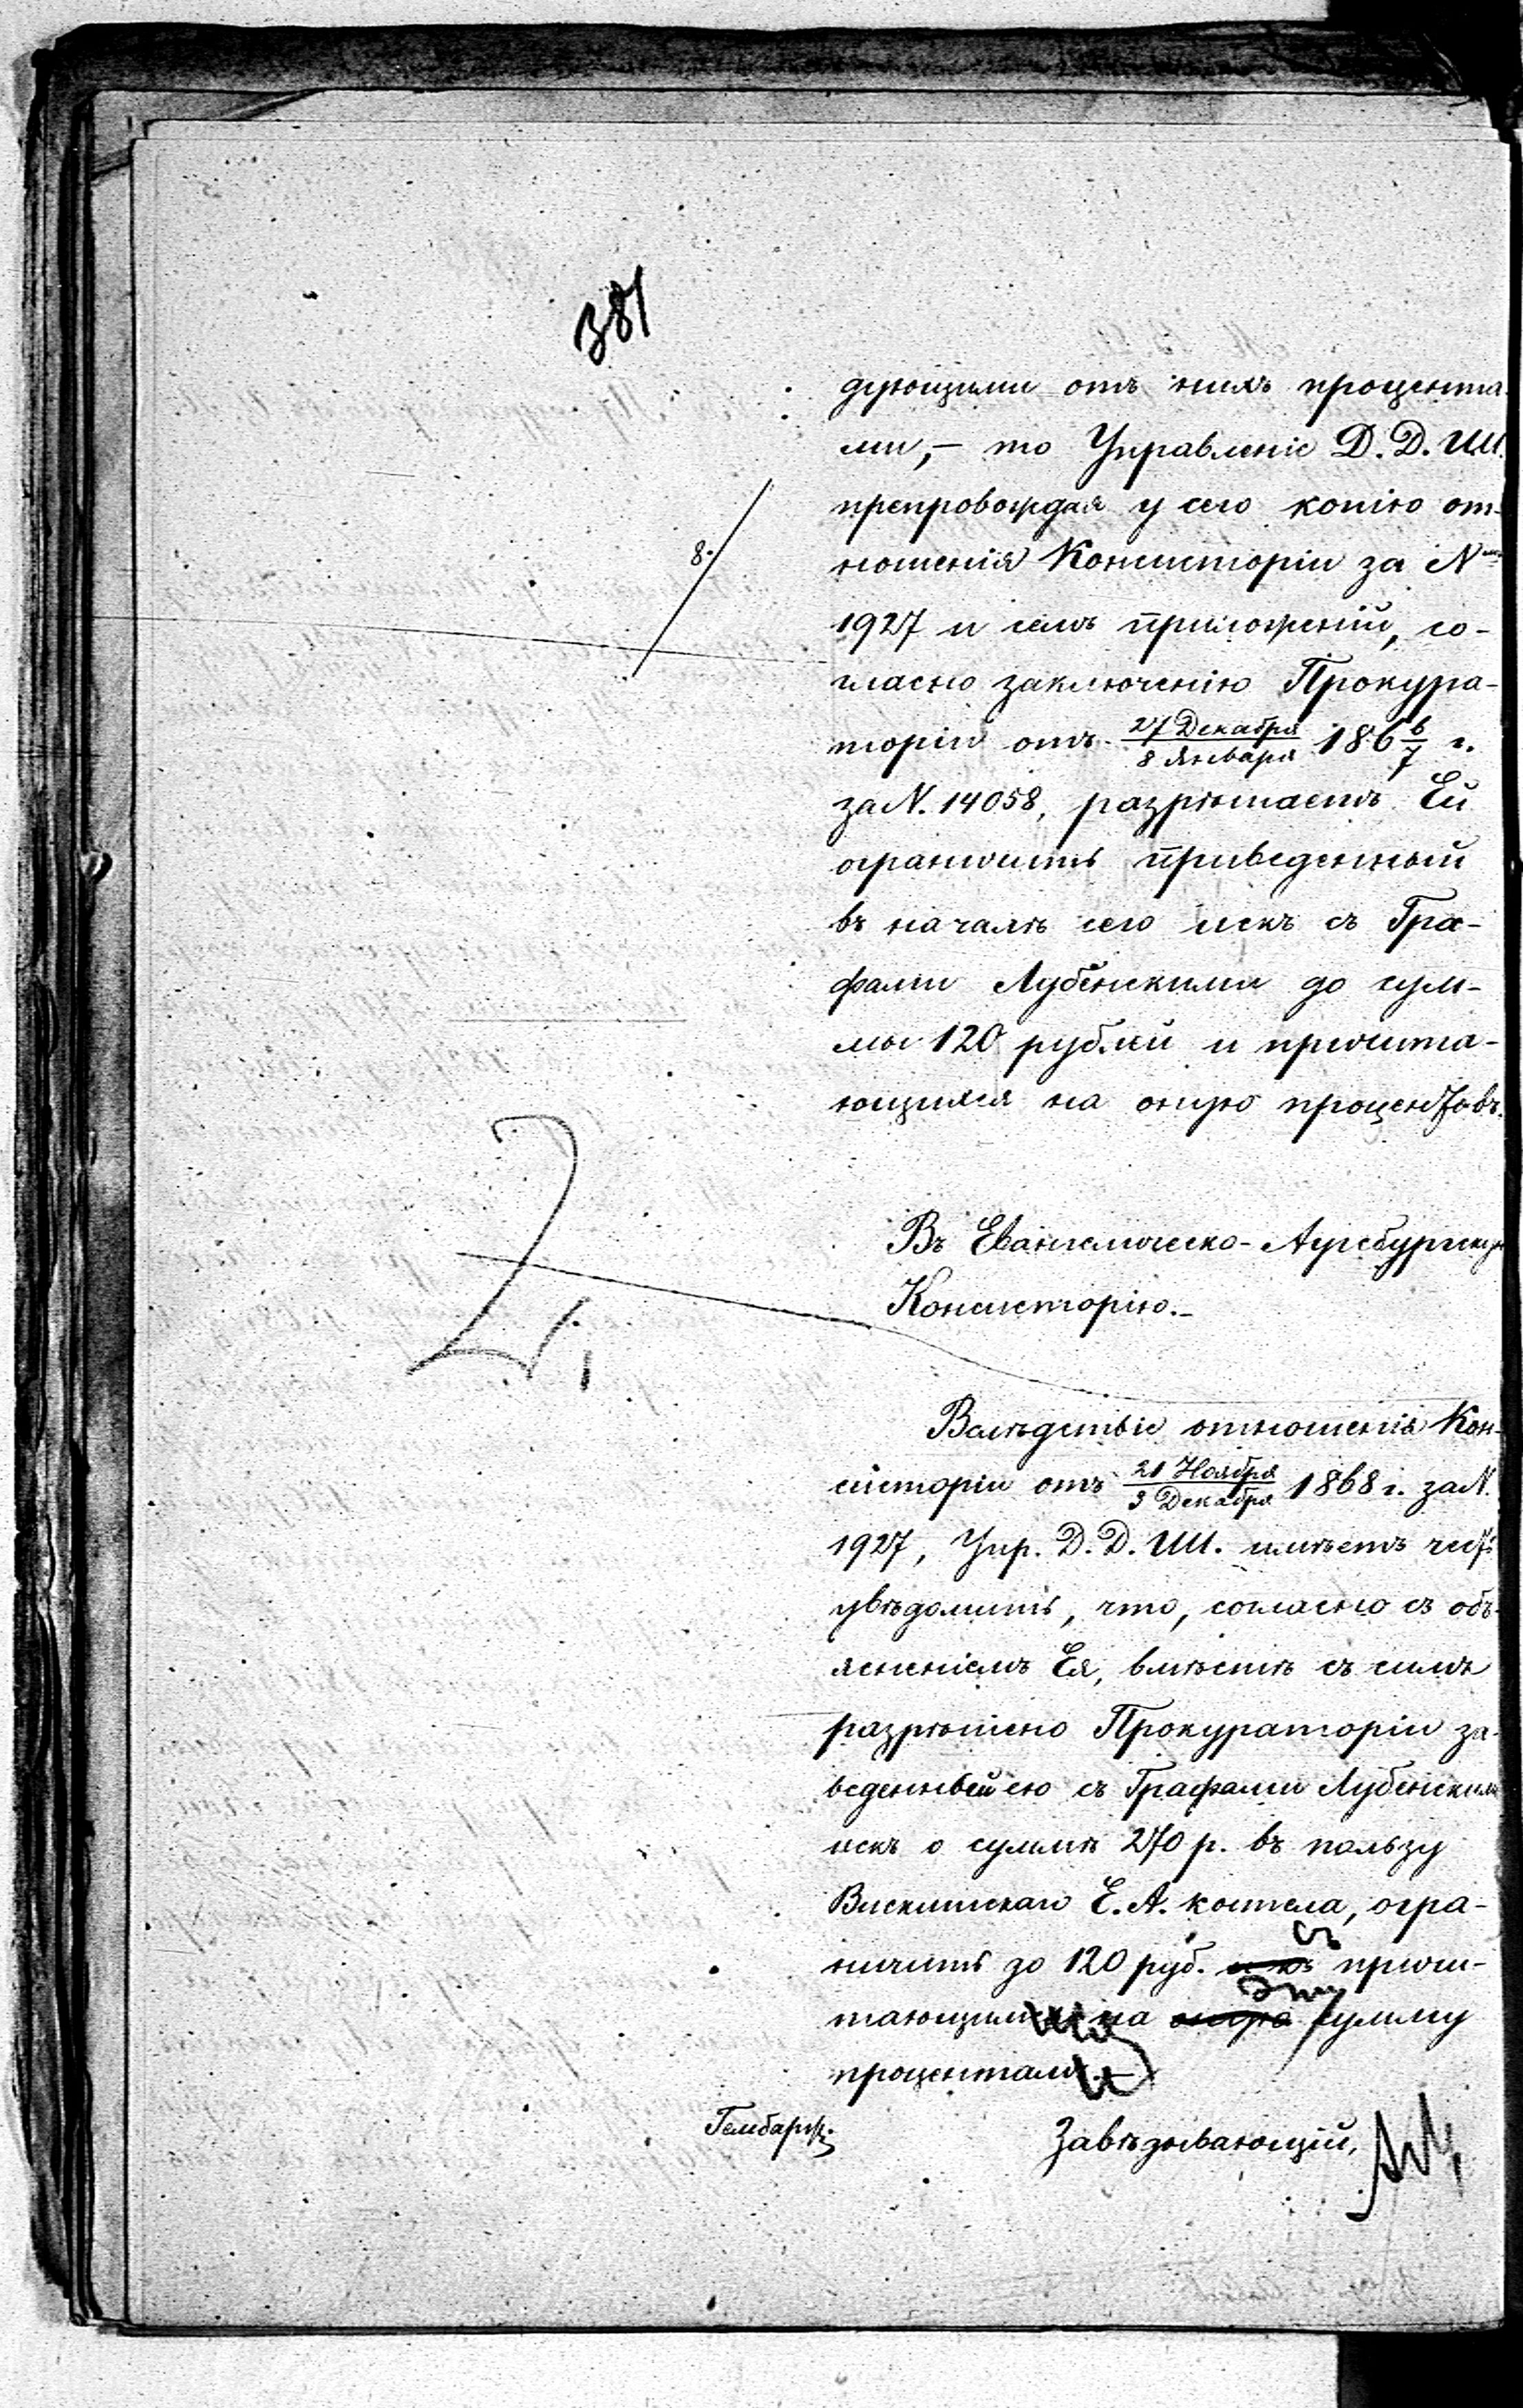 381
дующими отъ нихъ процента-
ми,- то Управленіе Д. Д. И.
препровождая у сего копію от-
8.
ношенія Консисторіи за №
1927 и семь приложеній, со-
гласно заключенію Прокура-
торіи отъ 27 Декабря/8 Января 186 6/7 г.
за N. 14058, разрѣшаетъ Ей
ограничить приведенный
въ началѣ сего искъ съ Гра-
фами Лубенскими до сум-
мы 120 рублей и причита-
ющихся на оную процентовъ.
Въ Евангелическо-Аугсбургскую
Консисторію.-
Вслѣдствіе отношенія Кон-
систоріи отъ 21 Ноября/3 Декабря 1868 г. за N.
1927, Упр. Д. Д. И. имѣетъ честь
увѣдомить, что, согласно съ объ-
ясненіемъ Ея, вмѣстѣ съ симъ
разрѣшено Прокураторіи за-
веденный ею съ Графами Лубенскими
искъ о суммѣ 270 р. въ пользу
Вискитскаго Е. А. костела, огра-
ничить до 120 руб. съ причи-
тающимися на эту сумму
процентами.-
Гембарж.
Завѣдывающій,